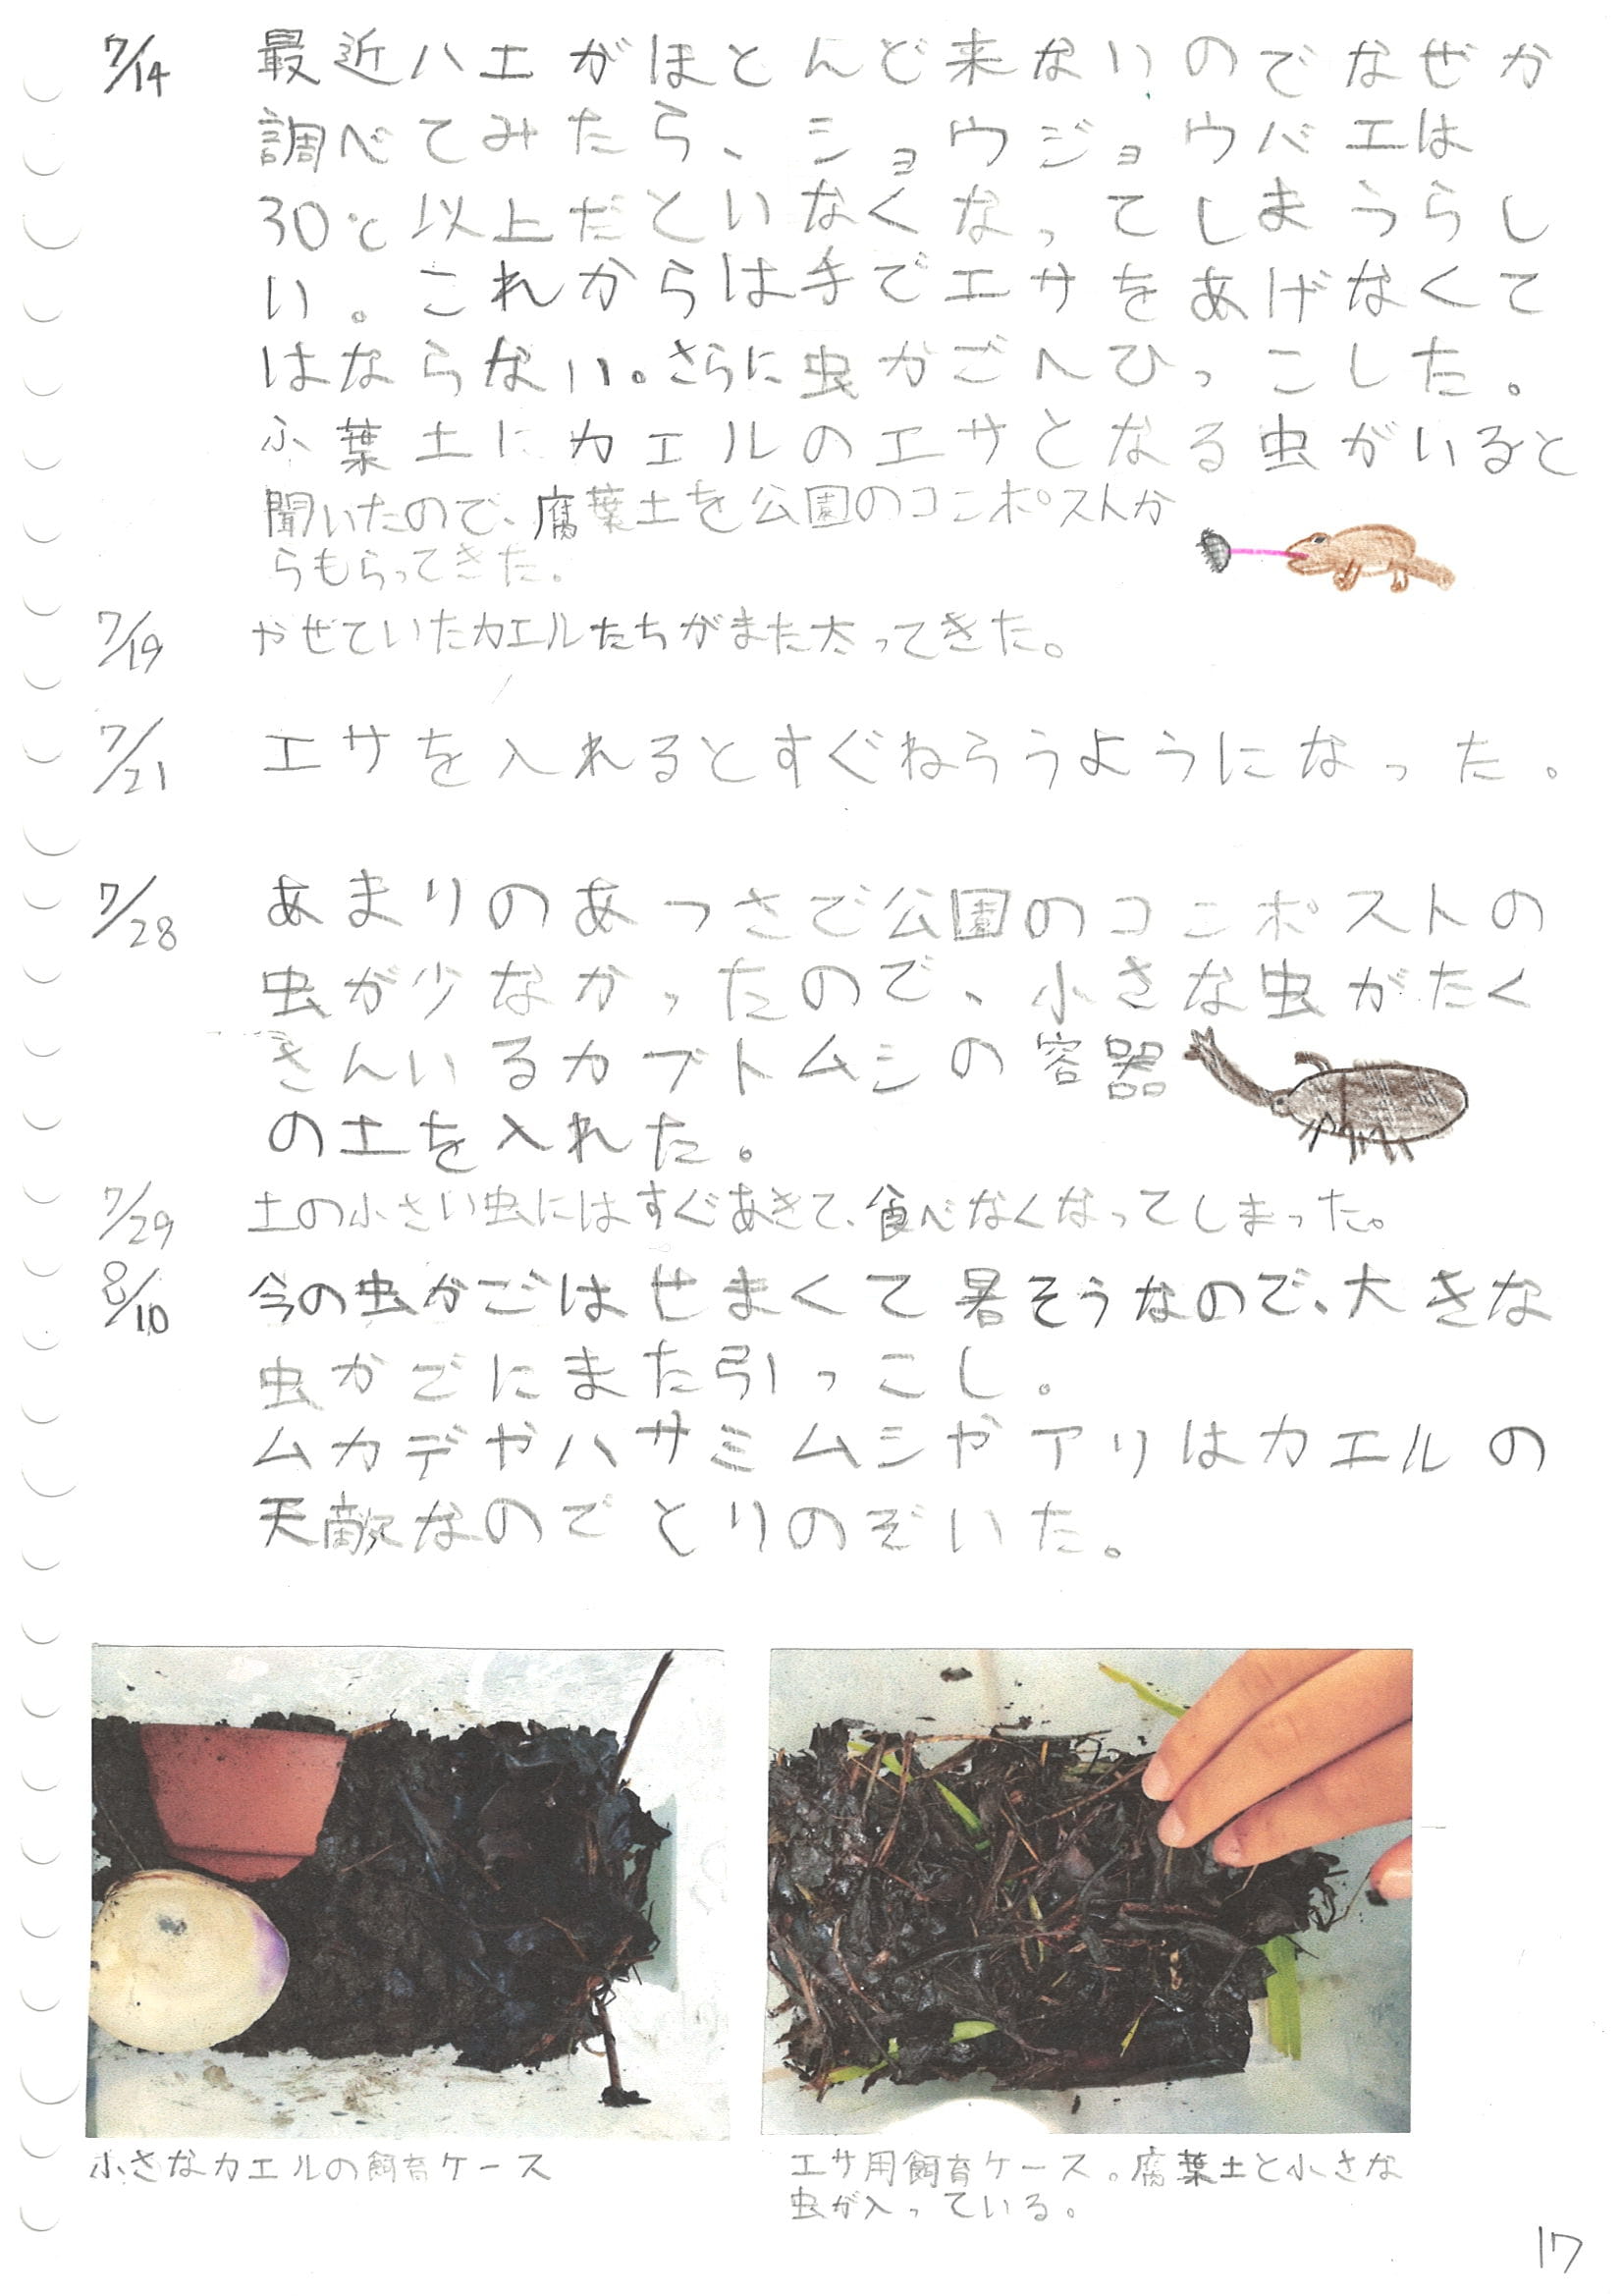 7/14 最近ハエがほとんど来ないのでなぜか
調べてみたら、ショウジョウバエは
30℃以上だといなくなってしまうらし
い。これからは手でエサをあげなくて
はならない。さらに虫かごへひっこした。
ふ葉土にカエルのエサとなる虫がいると
聞いたので、腐葉土を公園のコンポストか
らもらってきた。
7/19 やせていたカエルたちがまた太ってきた。
7/21 エサを入れるとすぐねらうようになった。
7/28 あまりのあつさで公園のコンポストの
虫が少なかったので、小さな虫がたく
さんいるカブトムシの容器
の土を入れた。
7/29 土の小さい虫にはすぐあきて、食べなくなってしまった。
8/10 今の虫かごはせまくて暑そうなので、大きな
虫かごにまた引っこし。
ムカデやハサミムシやアリはカエルの
天敵なのでとりのぞいた。
小さなカエルの飼育ケース
エサ用飼育ケース。腐葉土と小さな
虫が入っている。
17